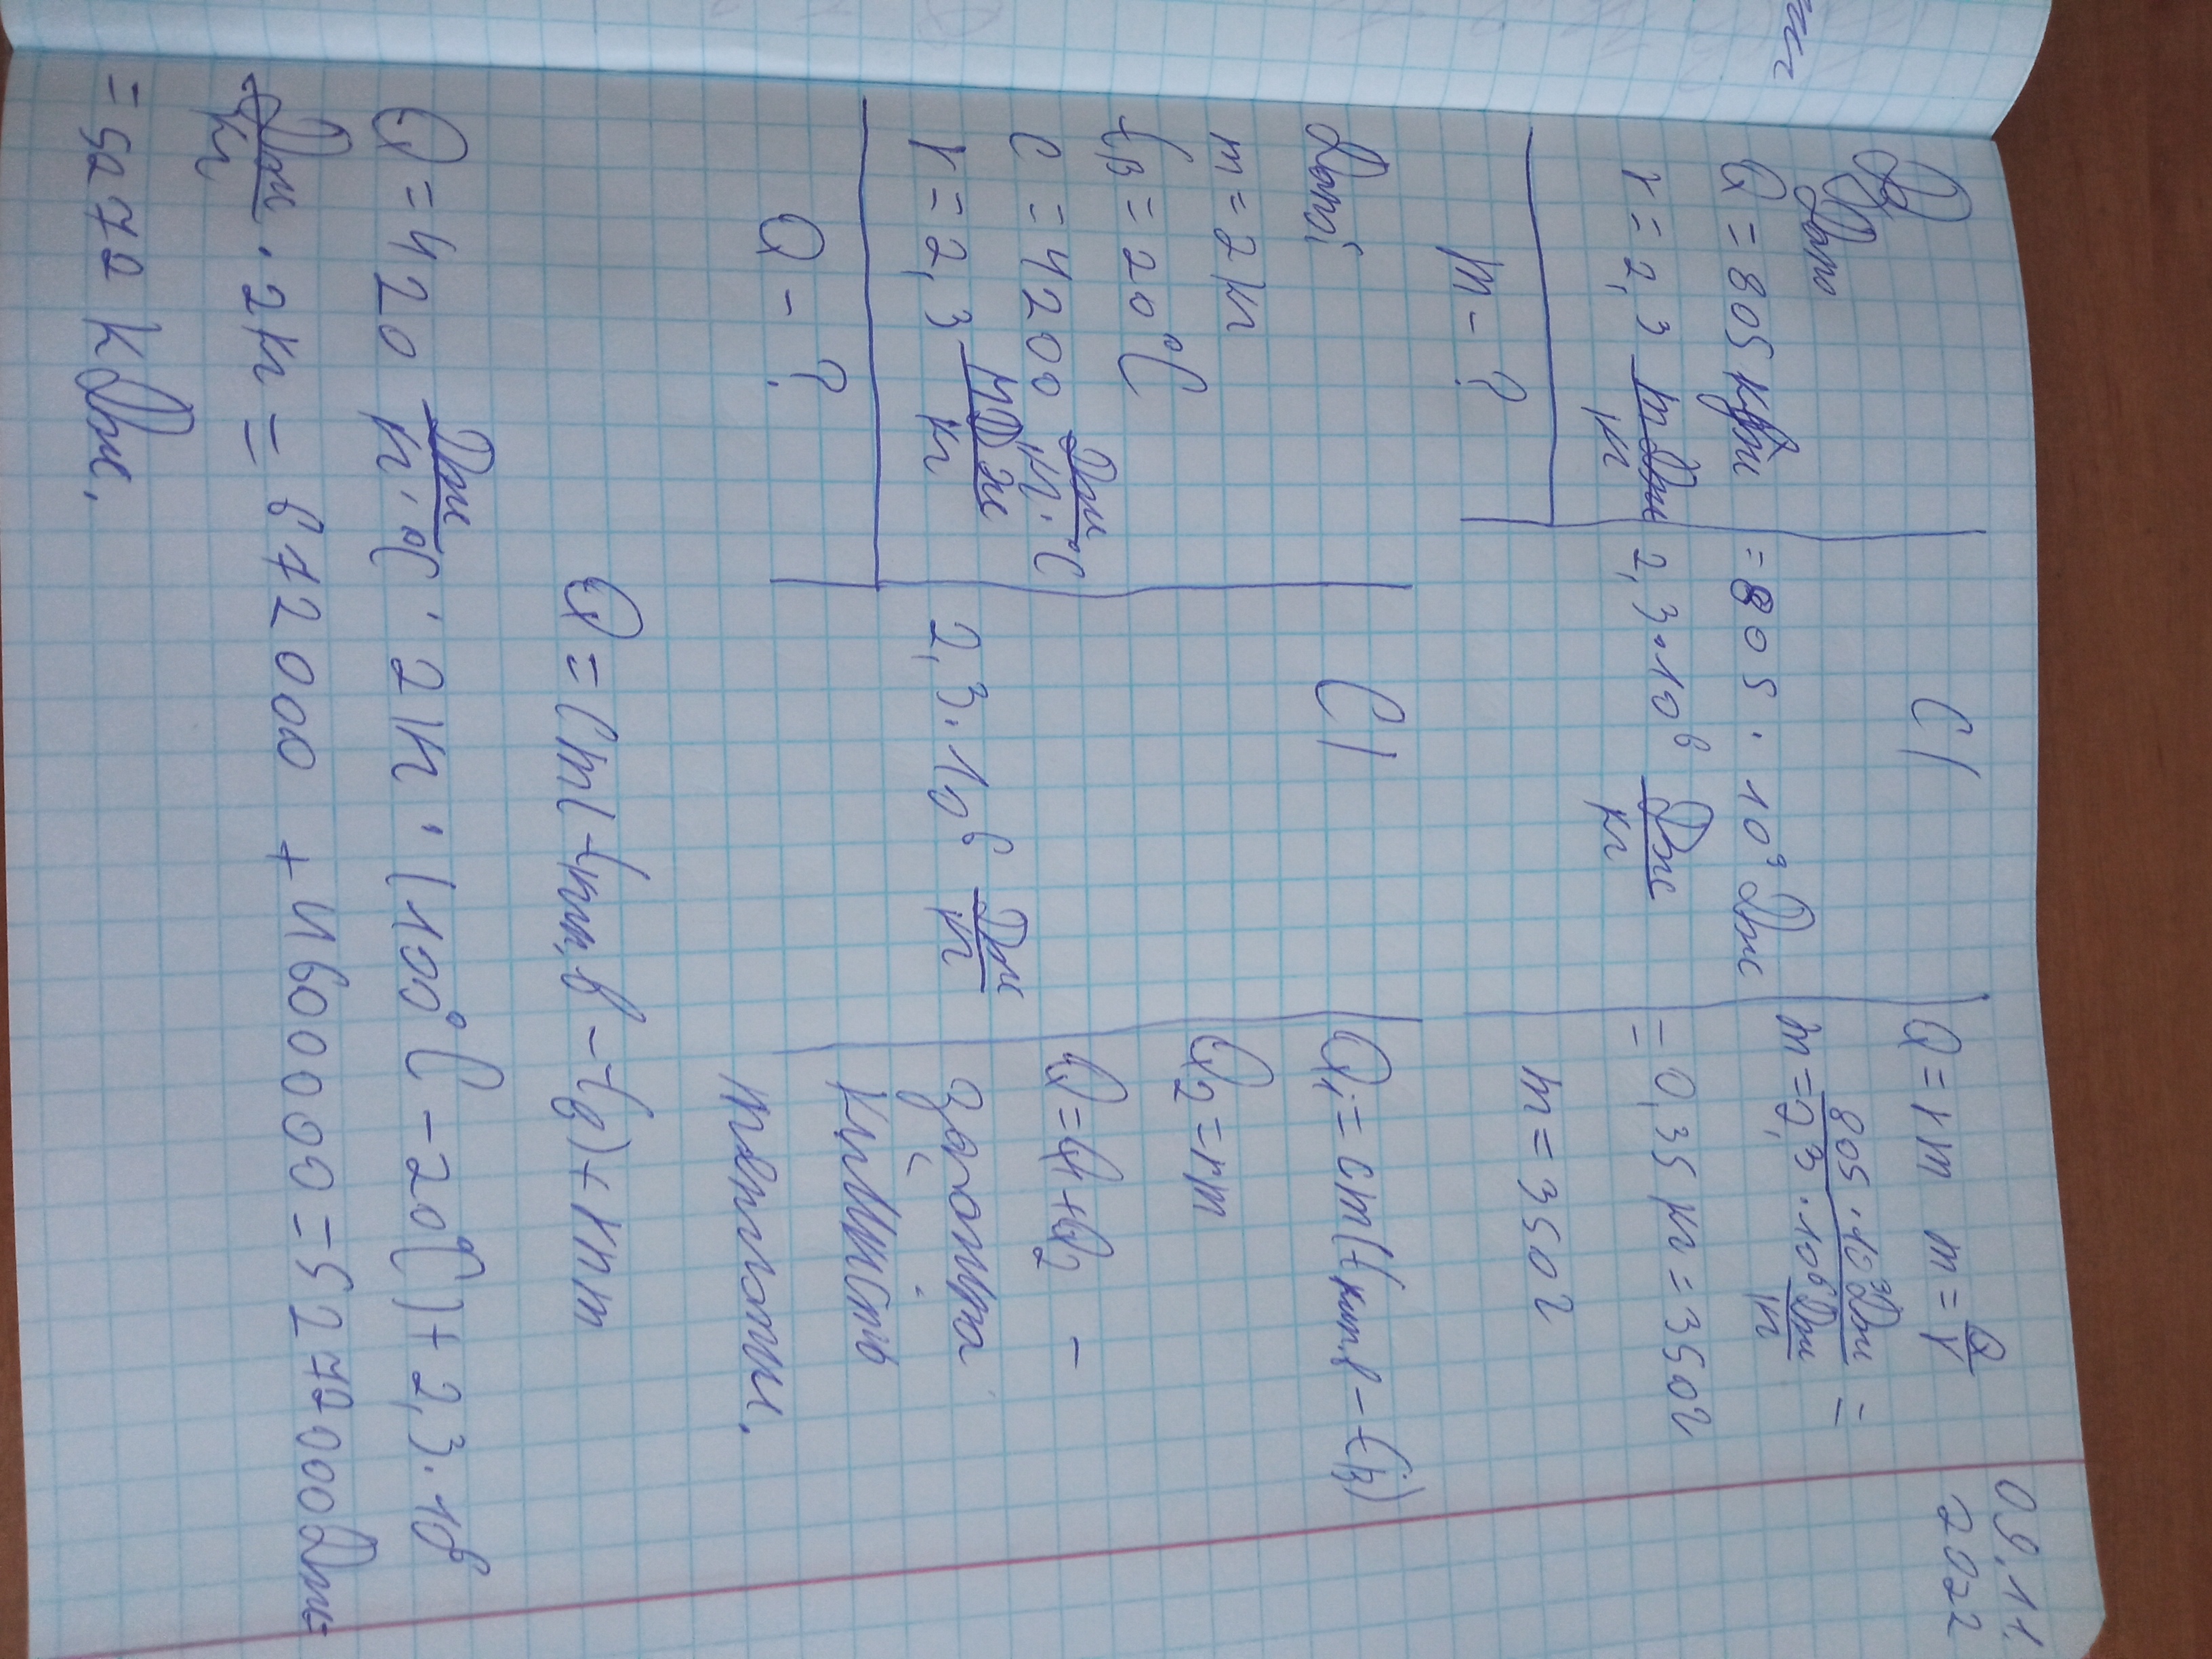 09.11.
2022
Дано
Q = 805 кДж
r = 2,3 МДж/кг
m - ?
СІ
= 805 · 10³ Дж
2,3 · 10⁶ Дж/кг
Q = rm m = Q/r
m = 805 · 10³ Дж / 2,3 · 10⁶ Дж/кг =
= 0,35 кг = 350 г
m = 350 г
Дано:
m = 2 кг
tв = 20 °C
c = 4200 Дж/кг · °C
r = 2,3 МДж/кг
Q - ?
СІ
2,3 · 10⁶ Дж/кг
Q₁ = cm(tкип.в - tв)
Q₂ = rm
Q = Q₁ + Q₂ -
кількість
теплоти.
Q = cm(tкип.в - tв) + rm
Q = 420 Дж/кг · °C · 2 кг · (100 °C - 20 °C) + 2,3 · 10⁶
Дж/кг · 2 кг = 672000 + 4600000 = 5272000 Дж =
= 5272 кДж.